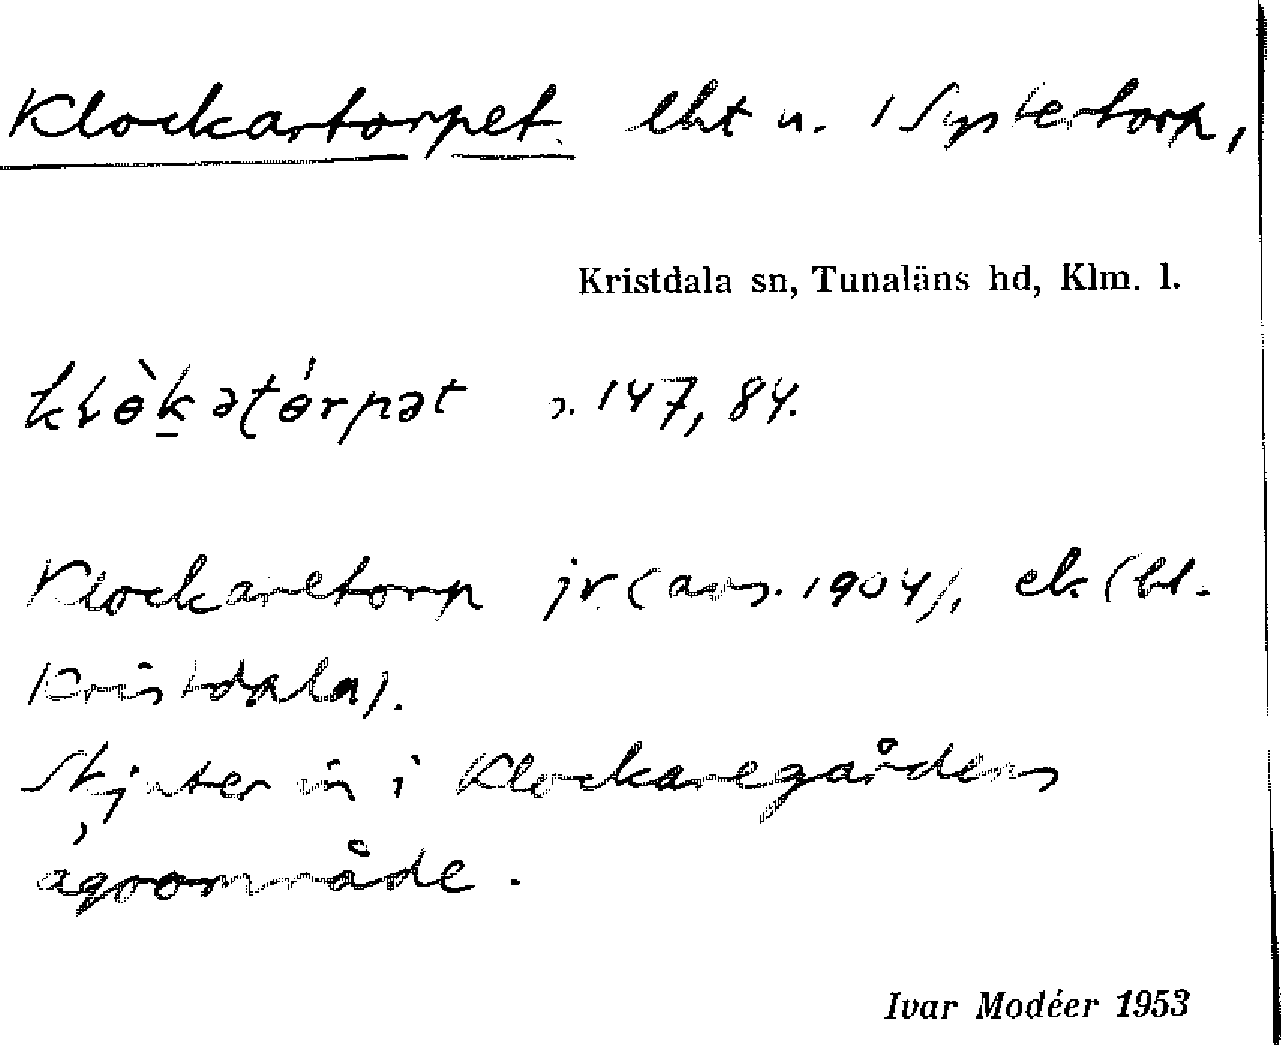 Klockartorpet. lht u. 1 Systertorp,
Kristdala sn, Tunaläns hd, Klm. l.
kɫɵ̀k̲ətɵ́rpət s. 147, 84.
Klockaretorp jr. (avs. 1904), ek (bl.
Kristdala).
Skjuter in i Klockaregårdens
ägoområde.
Ivar Modéer 1953